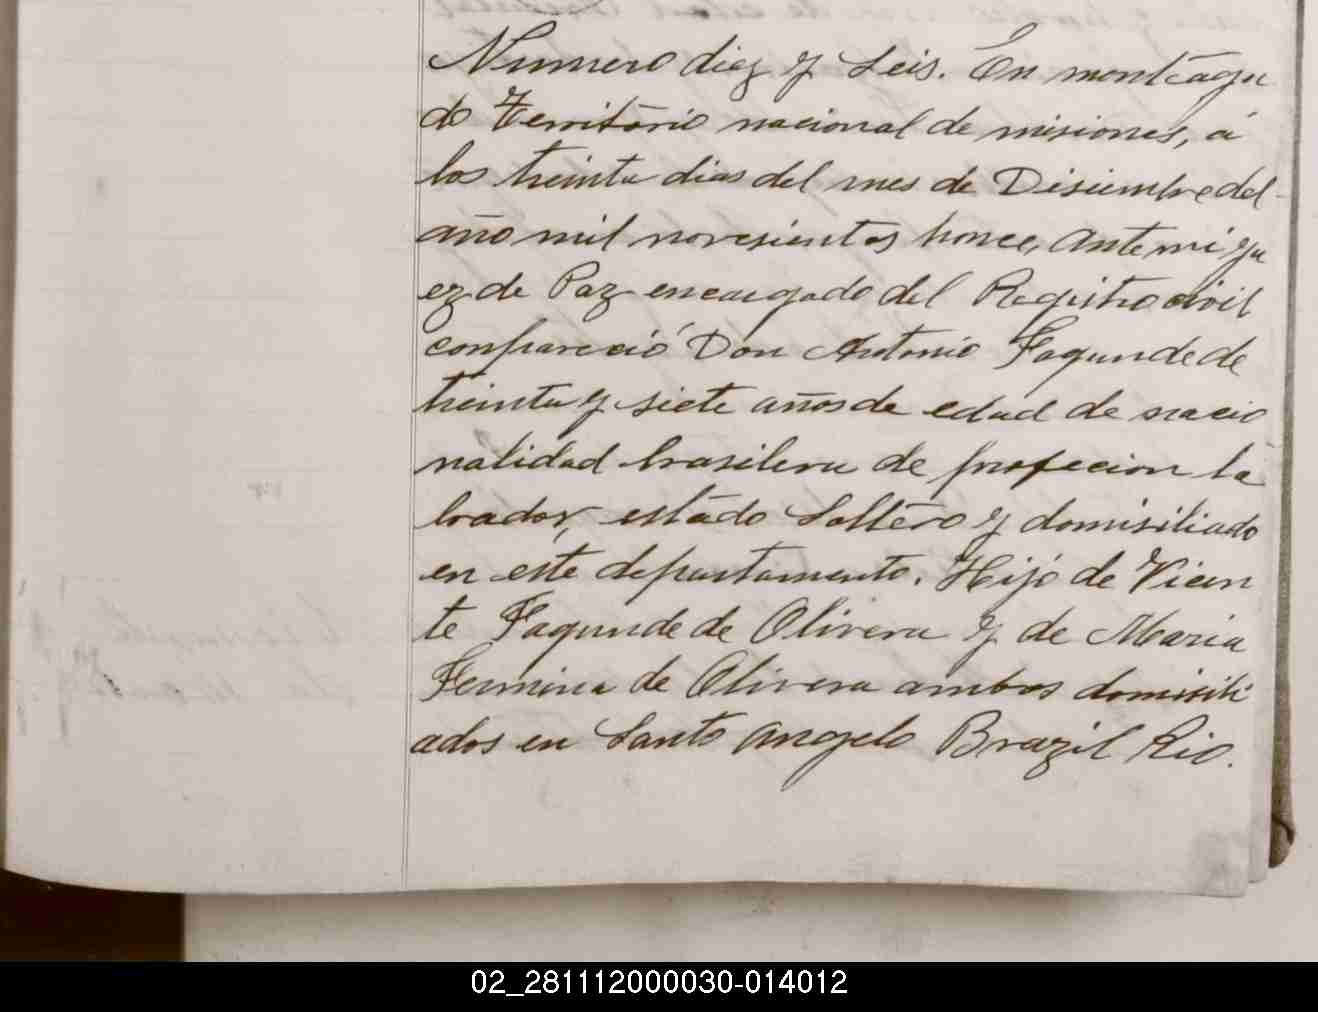 Numero diez y Seis. En monteagu
do Territorio nacional de misiones, á
los treinta dias del mes de Disiembre del
año mil novesientos honce, Ante mi Ju
ez de Paz encargado del Registro civil
conpareció Don Antonio Fagunde de
treinta y siete años de edad de nacio
nalidad brasilera de profecion la
brador, estado Soltero y domisiliado
en este departamento. Hijo de Vicen
te Fagunde de Olivera y de Maria
Fermina de Olivera ambos domisili
ados en Santo Angelo Brazil Rio.
02_281112000030-014012